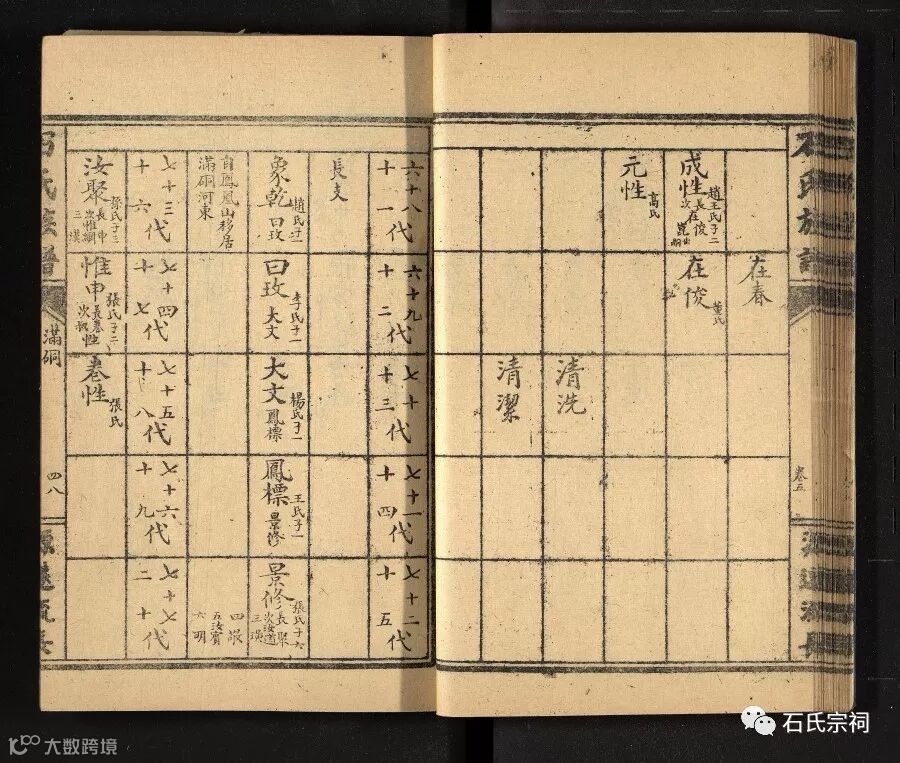 石氏族譜
卷五
源遠流長
在春
成性
趙王氏子二
長在俊
在俊
董氏
元性
高氏
清洗
清潔
六十八代
十一
六十九代
十二
七十代
十三
七十一代
十四
七十二代
十五
長支
象乾
趙氏子一
曰玫
曰玫
李氏子一
大文
大文
楊氏子一
鳳標
鳳標
王氏子一
景修
景修
張氏子六
長聚
次汝道
三璜
自鳳凰山移居
滿硐河東
五汝賓
六明
七十三代
十六
七十四代
十七
七十五代
十八
七十六代
十九
七十七代
二十
汝聚
孫氏子三
長申
次惟綱
三漢
惟申
張氏子二
長卷性
次叔
卷性
張氏
石氏族譜
滿硐
四八
源遠流長
石氏宗祠
大数跨境